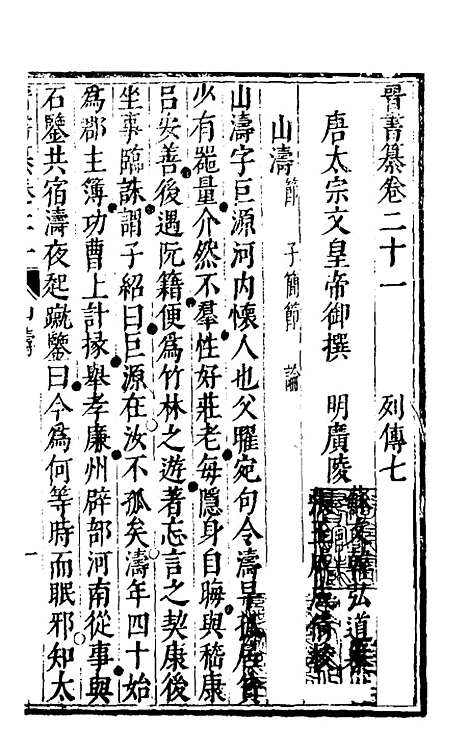 晉書纂卷二十一 列傳七
唐太宗文皇帝御撰 明廣陵
弘道
山濤 節 子簡節 論
山濤字巨源河内懷人也父曜宛句令濤早孤居貧
少有器量介然不羣性好莊老每隱身自晦與嵇康
吕安善後遇阮籍便為竹林之遊著忘言之契康後
坐事臨誅謂子紹曰巨源在汝不孤矣濤年四十始
為郡主簿功曹上計掾舉孝廉州辟部河南從事與
石鑒共宿濤夜起蹴鑒曰今為何等時而眠邪知太